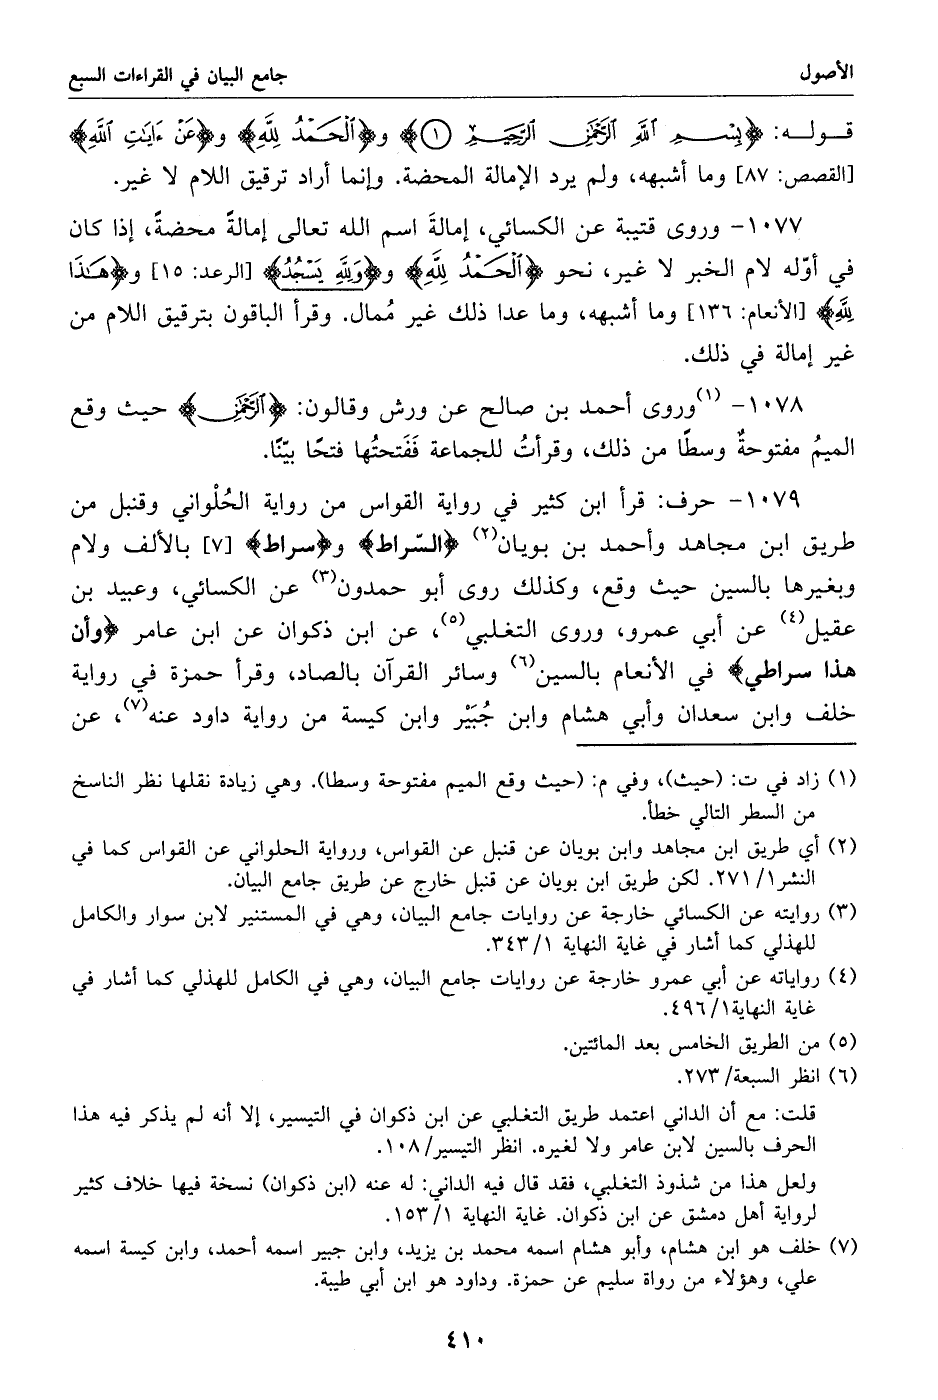 الأصول
جامع البيان في القراءات السبع
قولـه: ﴿بِسْمِ ٱللَّهِ ٱلرَّحْمَٰنِ ٱلرَّحِيمِ ١﴾ و﴿ٱلْحَمْدُ لِلَّهِ﴾ و﴿عَنْ ءَايَٰتِ ٱللَّهِ﴾
[القصص: ٨٧] وما أشبهه، ولم يرد الإمالة المحضة. وإنما أراد ترقيق اللام لا غير.
١٠٧٧- وروى قتيبة عن الكسائي، إمالةَ اسم الله تعالى إمالةً محضةً، إذا كان
في أوّله لام الخبر لا غير، نحو ﴿ٱلْحَمْدُ لِلَّهِ﴾ و﴿وَلِلَّهِ يَسْجُدُ﴾ [الرعد: ١٥] و﴿هَٰذَا
لِلَّهِ﴾ [الأنعام: ١٣٦] وما أشبهه، وما عدا ذلك غير مُمال. وقرأ الباقون بترقيق اللام من
غير إمالة في ذلك.
١٠٧٨- (١)وروى أحمد بن صالح عن ورش وقالون: ﴿ٱلرَّحْمَٰنِ﴾ حيث وقع
الميمُ مفتوحةٌ وسطًا من ذلك، وقرأتُ للجماعة فَفَتحتُها فتحًا بيّنًا.
١٠٧٩- حرف: قرأ ابن كثير في رواية القواس من رواية الحُلْواني وقنبل من
طريق ابن مجاهد وأحمد بن بويان(٢) ﴿السّراط﴾ و﴿سراط﴾ [٧] بالألف ولام
وبغيرها بالسين حيث وقع، وكذلك روى أبو حمدون(٣) عن الكسائي، وعبيد بن
عقيل(٤) عن أبي عمرو، وروى التغلبي(٥)، عن ابن ذكوان عن ابن عامر ﴿وأن
هذا سراطي﴾ في الأنعام بالسين(٦) وسائر القرآن بالصاد، وقرأ حمزة في رواية
خلف وابن سعدان وأبي هشام وابن جُبَيْر وابن كيسة من رواية داود عنه(٧)، عن
(١) زاد في ت: (حيث)، وفي م: (حيث وقع الميم مفتوحة وسطا). وهي زيادة نقلها نظر الناسخ
من السطر التالي خطأ.
(٢) أي طريق ابن مجاهد وابن بويان عن قنبل عن القواس، ورواية الحلواني عن القواس كما في
النشر١/ ٢٧١. لكن طريق ابن بويان عن قنبل خارج عن طريق جامع البيان.
(٣) روايته عن الكسائي خارجة عن روايات جامع البيان، وهي في المستنير لابن سوار والكامل
للهذلي كما أشار في غاية النهاية ١/ ٣٤٣.
(٤) رواياته عن أبي عمرو خارجة عن روايات جامع البيان، وهي في الكامل للهذلي كما أشار في
غاية النهاية١/ ٤٩٦.
(٥) من الطريق الخامس بعد المائتين.
(٦) انظر السبعة/ ٢٧٣.
قلت: مع أن الداني اعتمد طريق التغلبي عن ابن ذكوان في التيسير، إلا أنه لم يذكر فيه هذا
الحرف بالسين لابن عامر ولا لغيره. انظر التيسير/ ١٠٨.
ولعل هذا من شذوذ التغلبي، فقد قال فيه الداني: له عنه (ابن ذكوان) نسخة فيها خلاف كثير
لرواية أهل دمشق عن ابن ذكوان. غاية النهاية ١/ ١٥٣.
(٧) خلف هو ابن هشام، وأبو هشام اسمه محمد بن يزيد، وابن جبير اسمه أحمد، وابن كيسة اسمه
علي، وهؤلاء من رواة سليم عن حمزة. وداود هو ابن أبي طيبة.
٤١٠